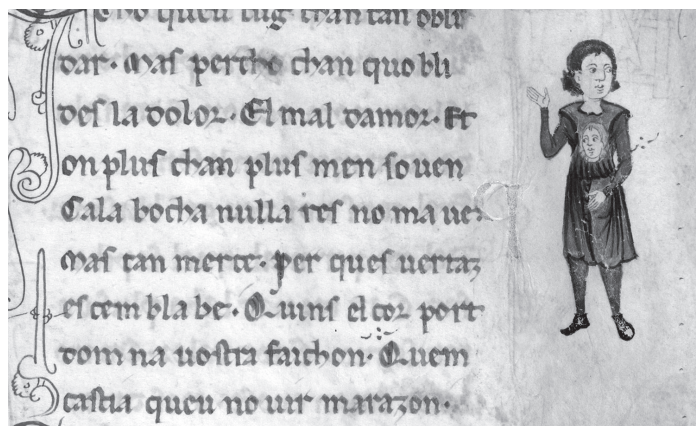 so queu cug chan tan obli
dar. Mas perche chan quo bli
des la dolor. El mal damor. Et
on plus chan plus men souen
Cala bocha nulla res no ma uen
mas tan merce. per ques uertaz
es cem bla be. Quins el cor port
dom na uostra faichon. Quem
castia queu no uir marazon.